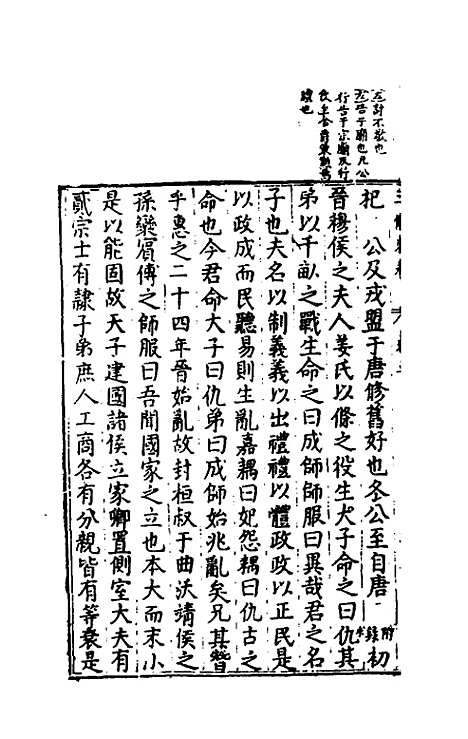 左討不敬也
左告于廟也凡公
行告于宗廟反行
飲至舍爵策勳焉
禮也
杞 公及戎盟于唐修舊好也冬公至自唐 附錄 初
晉穆侯之夫人姜氏以條之役生大子命之曰仇其
弟以千畝之戰生命之曰成師師服曰異哉君之名
子也夫名以制義義以出禮禮以體政政以正民是
以政成而民聽易則生亂嘉耦曰妃怨耦曰仇古之
命也今君命大子曰仇弟曰成師始兆亂矣兄其替
乎惠之二十四年晉始亂故封桓叔于曲沃靖侯之
孫欒賓傅之師服曰吾聞國家之立也本大而末小
是以能固故天子建國諸侯立家卿置側室大夫有
貳宗士有隸子弟庶人工商各有分親皆有等衰是